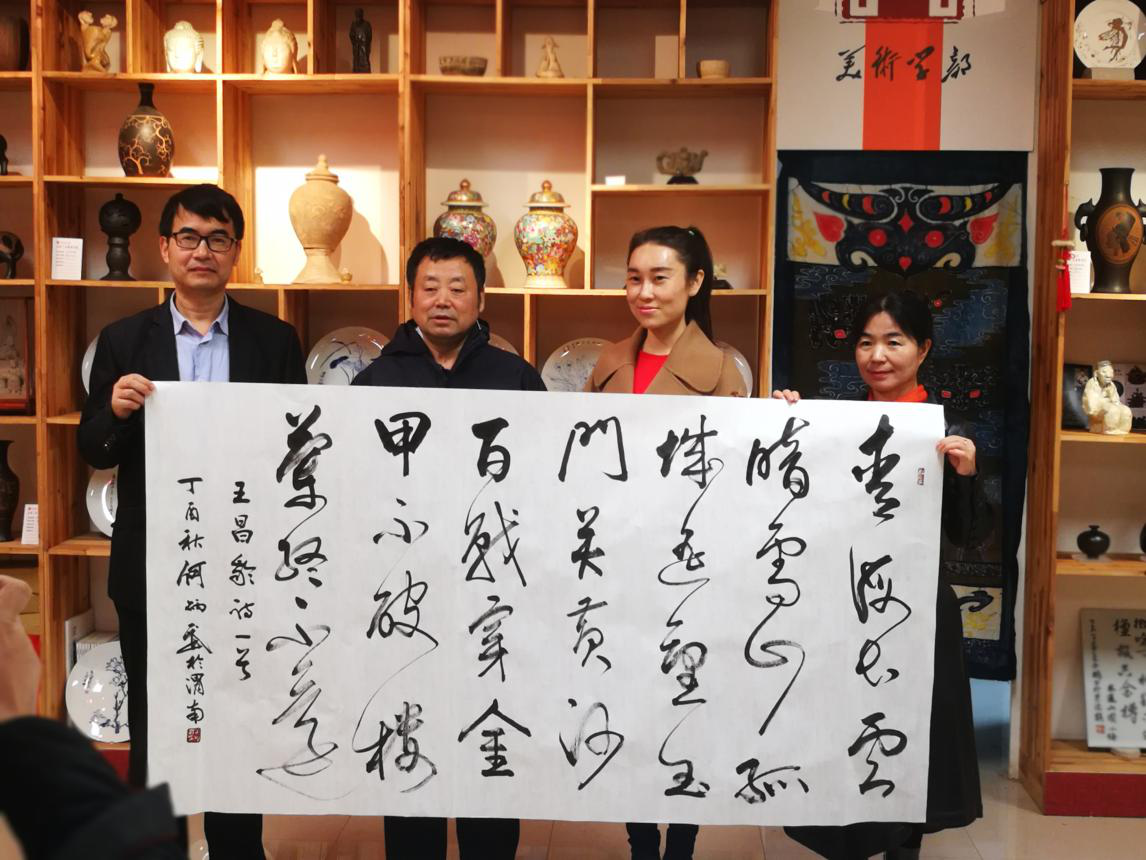 美術学部
青海長雲
暗雪山孤
城遥望玉
門关黄沙
百戰穿金
甲不破樓
蘭終不還
王昌齡詩一首
丁酉秋何炳武於渭南